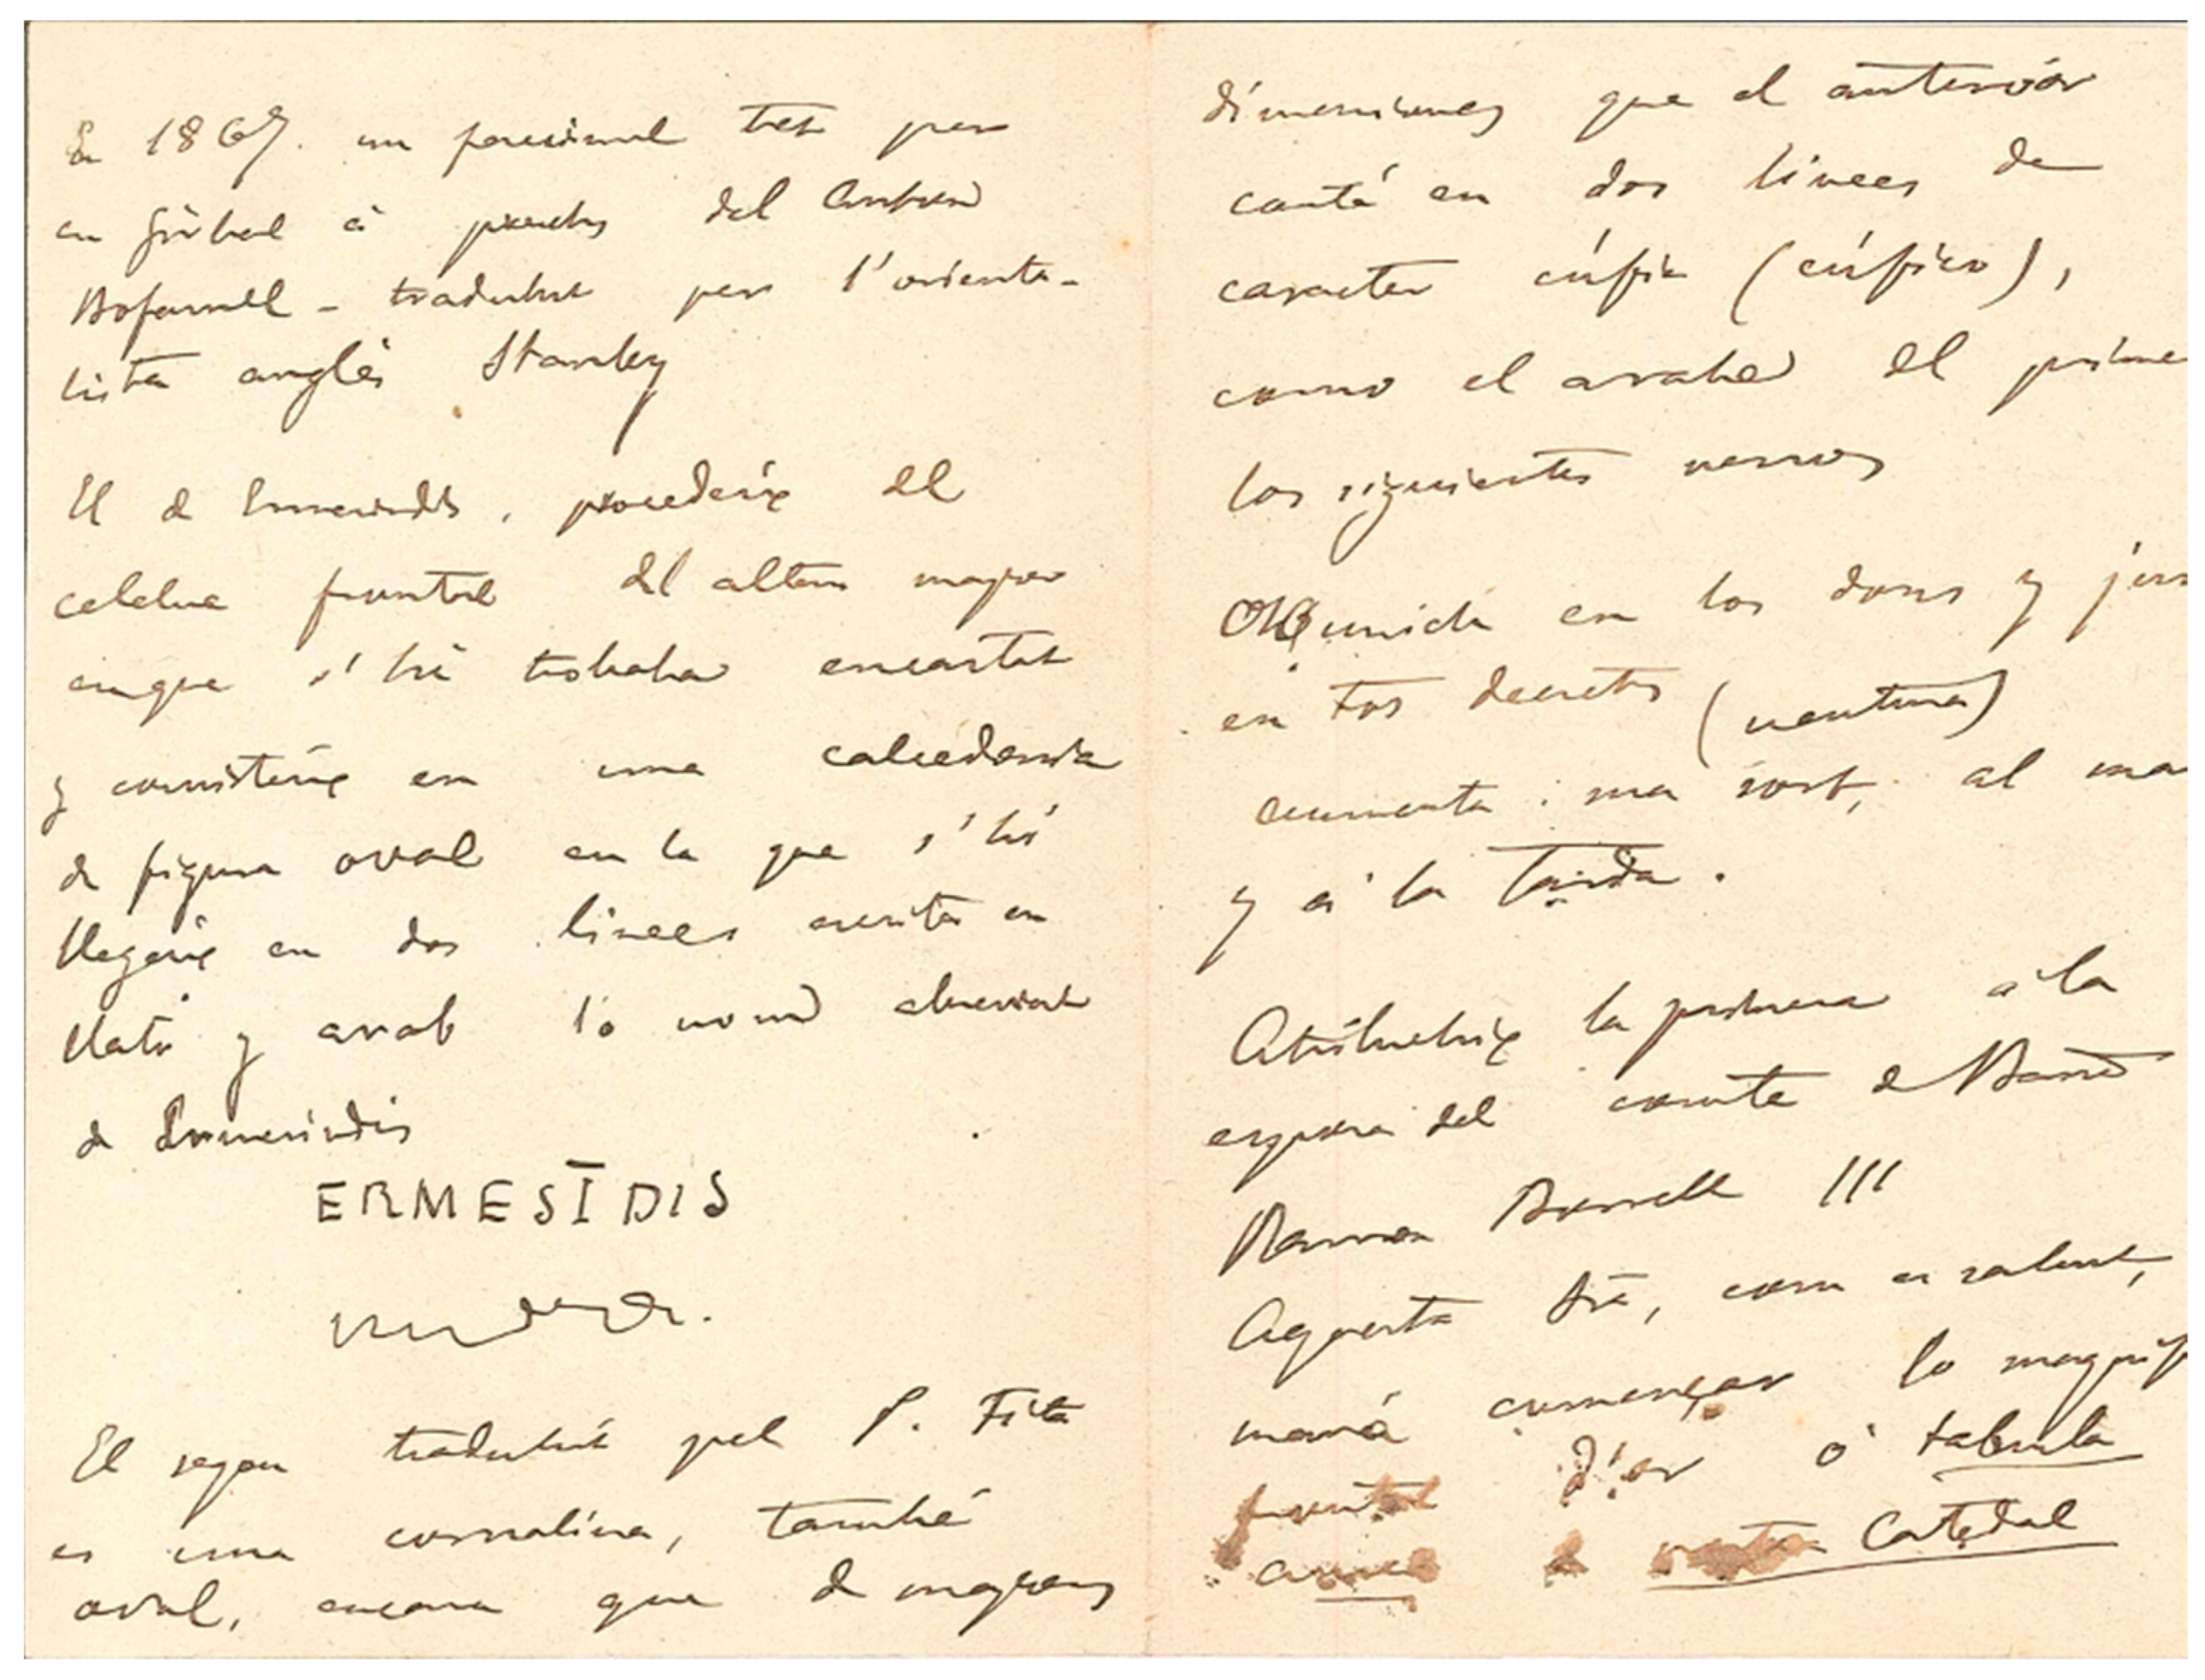 En 1867. un facsimil tret per
en Girbal á prechs del Antoni
Bofarull - traduhit per l'orienta-
lista anglés Stanley
El de Ermesindis, procedeix del
celebre frontal del altar major
en que s'hi trobaba encastat
y consisteix en una calcedonia
de figura oval en la que s'hi
llegeix en dos linees escrita en
llatí y arab lo nom abreviat
de Ermesindis
ERMESĪDIS
El segon traduhit pel P. Fita
es una cornalina, també
oval, encara que de majors
dimensiones que el anterior
conté en dos linees de
caracter cúfic (cúfico),
como el arabe del prime
los siguientes versos
unida en los dons y
en tos decrets (ventura)
aumenta: ma sort, al ma
y á la tarda.
Atribuheix la primera á la
esposa del comte de Barna
Ramon Borrell III
Aquesta fou, com es sabut,
maná comensar lo magníf
frontal d'or ó tabula
aurea de nostra Catedral